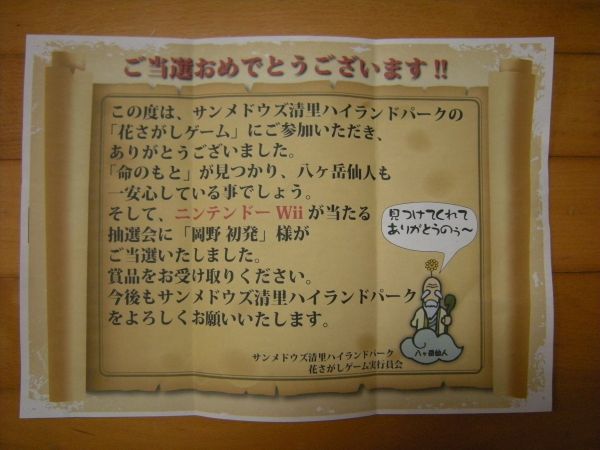 ご当選おめでとうございます!!
この度は、サンメドウズ清里ハイランドパークの
「花さがしゲーム」にご参加いただき、
ありがとうございました。
「命のもと」が見つかり、八ヶ岳仙人も
一安心している事でしょう。
そして、ニンテンドーWiiが当たる
抽選会に「岡野 初発」様が
ご当選いたしました。
賞品をお受け取りください。
今後もサンメドウズ清里ハイランドパーク
をよろしくお願いいたします。
見つけてくれて
ありがとうのぅ〜
八ヶ岳仙人
サンメドウズ清里ハイランドパーク
花さがしゲーム実行員会